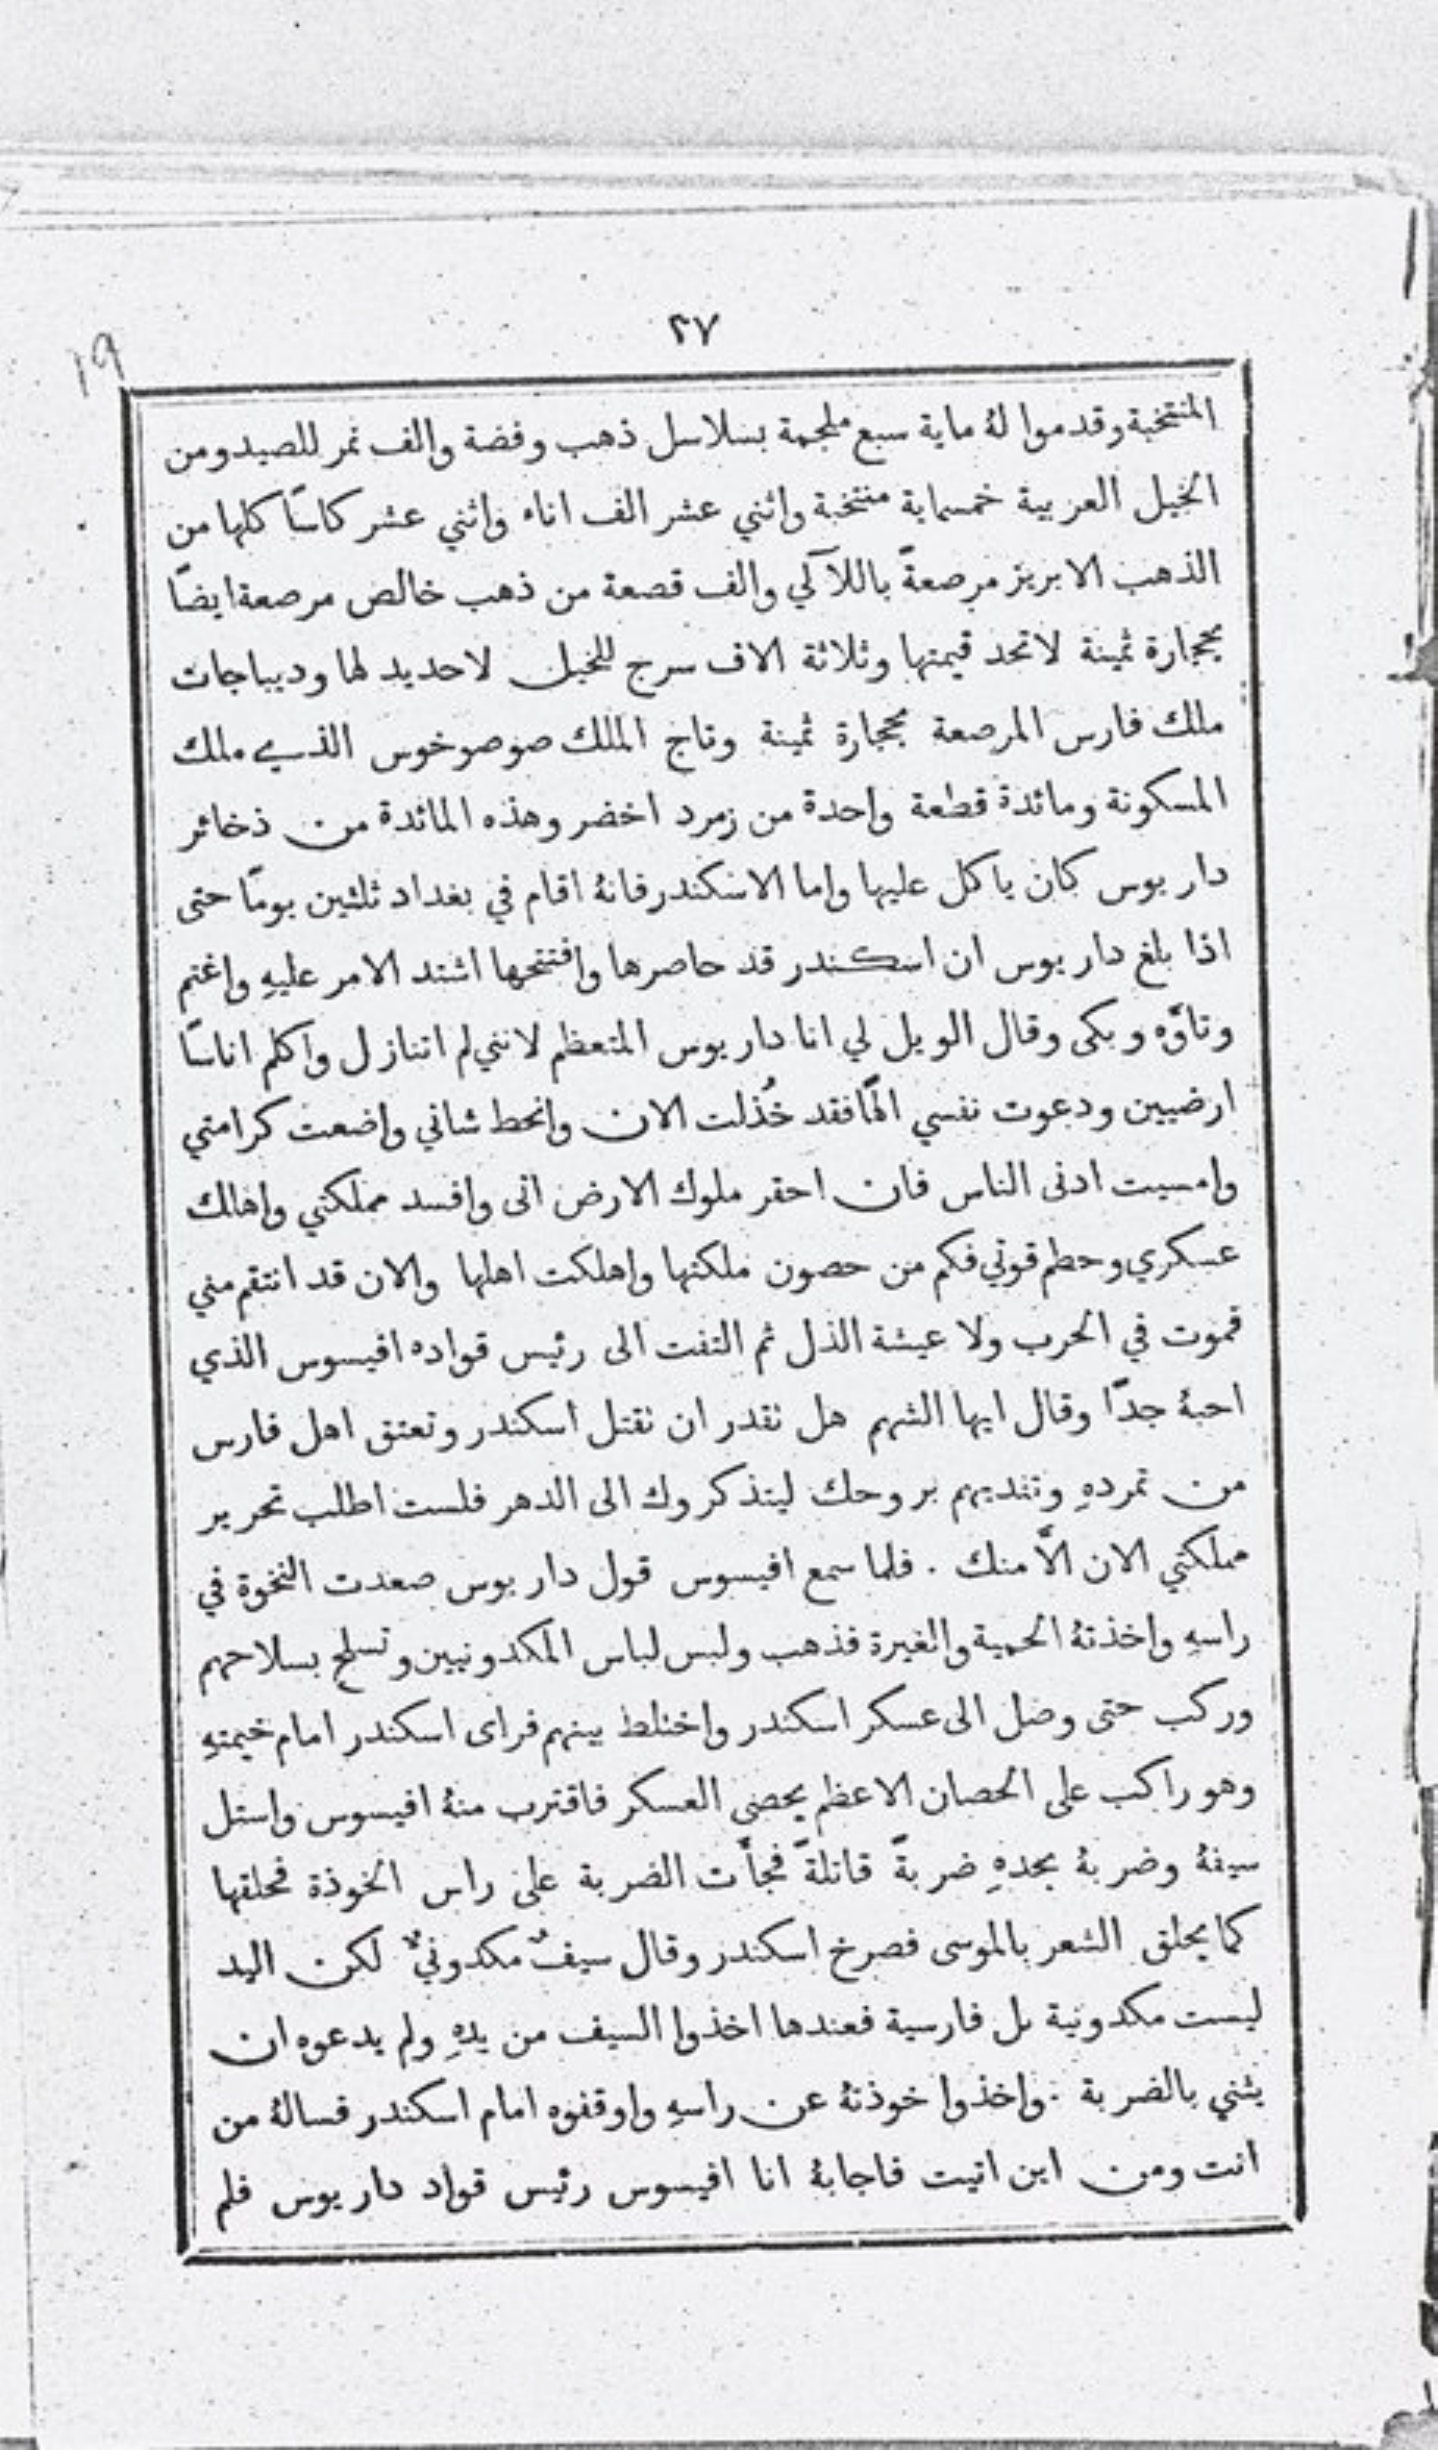 ٢٧
١٩
المنتخبة وقدموا لهُ ماية سبع ملجمة بسلاسل ذهب وفضة والف نمر للصيد ومن
الخيل العربية خمسماية منتخبة واثني عشر الف اناء واثني عشر كاسًا كلها من
الذهب الابريز مرصعةً باللآلي والف قصعة من ذهب خالص مرصعة ايضًا
بحجارة ثمينة لاتحد قيمتها وثلاثة الاف سرج للخيل لاحديد لها وديباجات
ملك فارس المرصعة بحجارة ثمينة وتاج الملك صوصوخوس الذي ملك
المسكونة ومائدة قطعة واحدة من زمرد اخضر وهذه المائدة من ذخائر
داريوس كان ياكل عليها واما الاسكندر فانهُ اقام في بغداد ثلثين يومًا حتى
اذا بلغ داريوس ان اسكندر قد حاصرها وافتتحها اشتد الامر عليهِ واغتم
وتاوَّه وبكى وقال الويل لي انا داريوس المتعظم لانني لم اتنازل واكلم اناسًا
ارضيين ودعوت نفسي الهًا فقد خُذلت الان وانحط شاني واضعت كرامتي
وامسيت ادنى الناس فان احقر ملوك الارض اتى وافسد مملكتي واهالك
عسكري وحطم قوتي فكم من حصون ملكتها واهلكت اهلها والان قد انتقم مني
فموت في الحرب ولا عيشة الذل ثم التفت الى رئيس قواده افيسوس الذي
احبهُ جدًّا وقال ايها الشهم هل تقدر ان تقتل اسكندر وتعتق اهل فارس
من تمردهِ وتفديهم بروحك ليتذكروك الى الدهر فلست اطلب تحرير
مملكتي الان الَّا منك . فلما سمع افيسوس قول داريوس صعدت النخوة في
راسهِ واخذتهُ الحمية والغيرة فذهب ولبس لباس المكدونيين وتسلح بسلاحهم
وركب حتى وصل الى عسكر اسكندر واختلط بينهم فراى اسكندر امام خيمتهِ
وهو راكب على الحصان الاعظم يحصي العسكر فاقترب منهُ افيسوس واستل
سيفهُ وضربهُ بحدهِ ضربةً قاتلةً فجأت الضربة على راس الخوذة فحلقها
كما يحلق الشعر بالموسى فصرخ اسكندر وقال سيفٌ مكدونيٌ لكن اليد
ليست مكدونية بل فارسية فعندها اخذوا السيف من يدهِ ولم يدعوه ان
يثني بالضربة . واخذوا خوذتهُ عن راسهِ واوقفوه امام اسكندر فسالهُ من
انت ومن اين اتيت فاجابهُ انا افيسوس رئيس قواد داريوس فلم